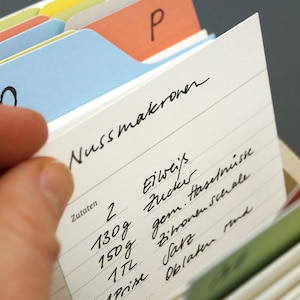 P
O
Nussmakronen
Zutaten
2 Eiweiß
130g Zucker
150g gem. Haselnüsse
1 TL Zitronenschale
1 Prise Salz
Oblaten rund